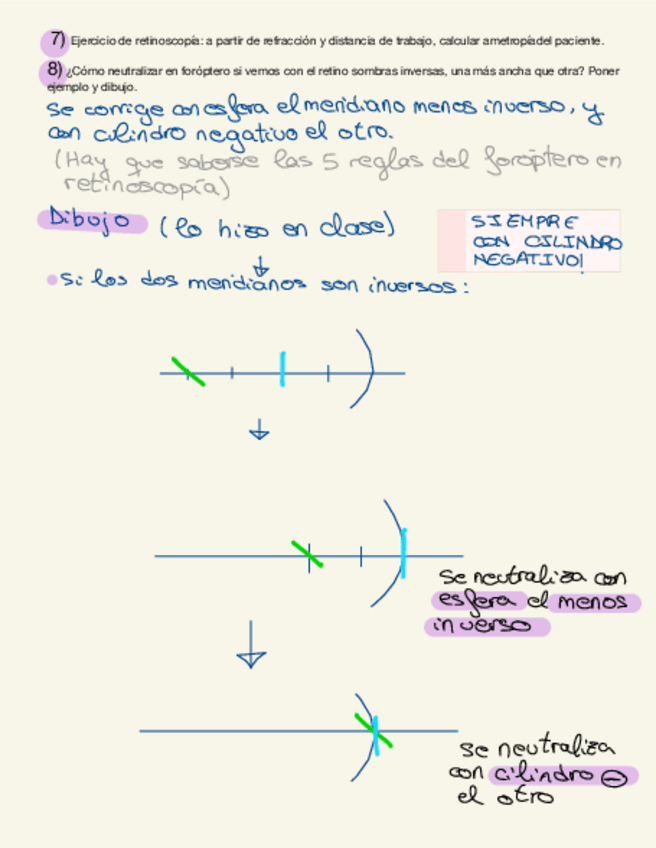 7) Ejercicio de retinoscopía: a partir de refracción y distancia de trabajo, calcular ametropía del paciente.
8) ¿Cómo neutralizar en foróptero si vemos con el retino sombras inversas, una más ancha que otra? Poner
ejemplo y dibujo.
Se corrige con esfera el meridiano menos inverso, y
con cilindro negativo el otro.
(Hay que saberse las 5 reglas del foróptero en
retinoscopía)
Dibujo (lo hizo en clase)
SIEMPRE
CON CILINDRO
NEGATIVO!
Si los dos meridianos son inversos:
Se neutraliza con
esfera el menos
inverso
Se neutraliza
con cilindro ⊖
el otro